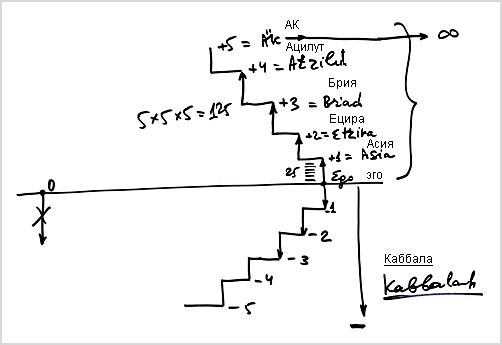 АК
+5 = Äk → ∞
Ацилут
+4 = Atzilut
Брия
+3 = Briah
5×5×5=125
Ецира
+2 = Etzira
Асия
+1 = Asia
25
Ego
эго
0
-1
-2
-3
-4
-5
Каббала
Kabbalah
–